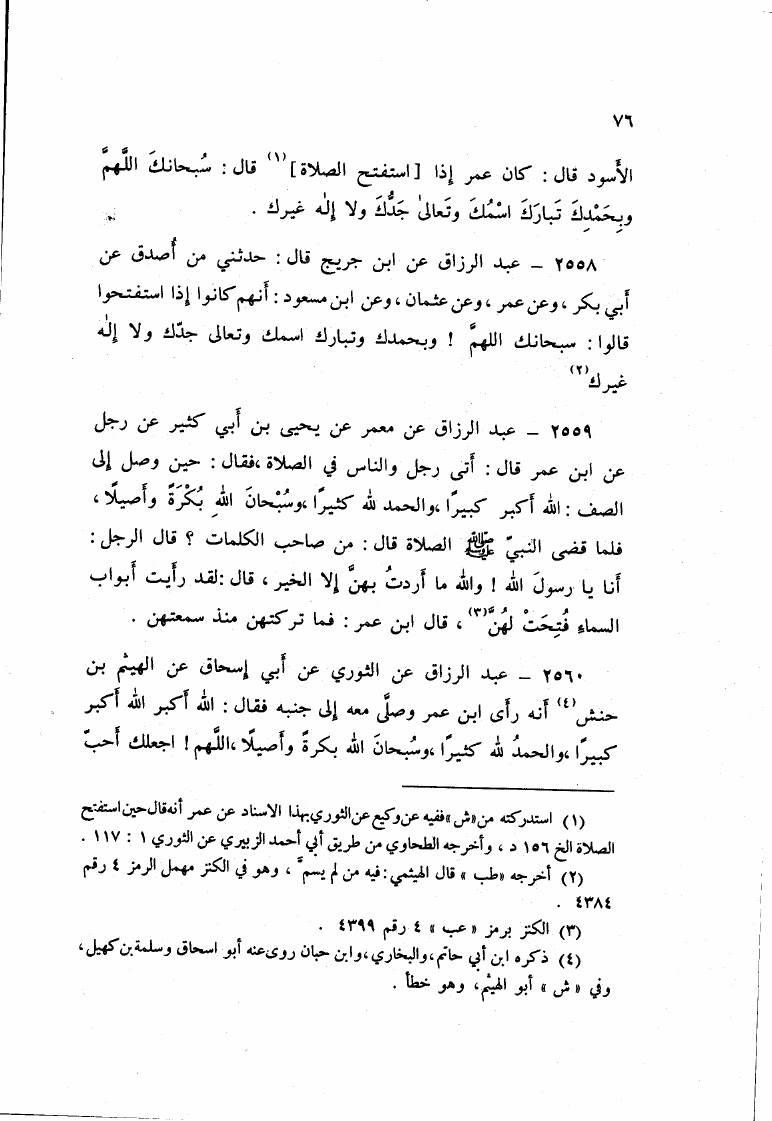 ٧٦
الأسود قال : كان عمر إذا [ استفتح الصلاة ](١) قال : سُبحانكَ اللَّهمَّ
وبِحَمْدِكَ تَبارَكَ اسْمُكَ وتَعالىٰ جَدُّكَ ولا إلٰه غيرك .
٢٥٥٨ – عبد الرزاق عن ابن جريج قال : حدثني من أُصدق عن
أبي بكر ، وعن عمر ، وعن عثمان ، وعن ابن مسعود : أنهم كانوا إذا استفتحوا
قالوا : سبحانك اللهمَّ ! وبحمدك وتبارك اسمك وتعالى جدّك ولا إلٰه
غيرك(٢)
٢٥٥٩ – عبد الرزاق عن معمر عن يحيى بن أبي كثير عن رجل
عن ابن عمر قال : أتى رجل والناس في الصلاة ، فقال : حين وصل إلى
الصف : الله أكبر كبيرًا ، والحمد لله كثيرًا ، وسُبْحانَ اللهِ بُكْرَةً وأصيلًا ،
فلما قضى النبيّ ﷺ الصلاة قال : من صاحب الكلمات ؟ قال الرجل :
أنا يا رسولَ الله ! والله ما أردتُ بهنَّ إلا الخير ، قال : لقد رأيت أبواب
السماءِ فُتِحَتْ لهُنَّ(٣) ، قال ابن عمر : فما تركتهن منذ سمعتهن .
٢٥٦٠ – عبد الرزاق عن الثوري عن أبي إسحاق عن الهيثم بن
حنش(٤) أنه رأى ابن عمر وصلَّى معه إلى جنبه فقال : الله أكبر الله أكبر
كبيرًا ، والحمدُ لله كثيرًا ، وسُبحانَ الله بكرةً وأصيلًا ، اللَّهم ! اجعلك أحبّ
(١) استدركته من «ش» ففيه عن وكيع عن الثوري بهذا الاسناد عن عمر أنه قال حين استفتح
الصلاة الخ ١٥٦ د ، وأخرجه الطحاوي من طريق أبي أحمد الزبيري عن الثوري ١ : ١١٧ .
(٢) أخرجه «طب » قال الهيثمي : فيه من لم يسمَّ ، وهو في الكنز مهمل الرمز ٤ رقم
٤٣٨٤ .
(٣) الكنز برمز « عب » ٤ رقم ٤٣٩٩ .
(٤) ذكره ابن أبي حاتم ، والبخاري ، وابن حبان روى عنه أبو اسحاق وسلمة بن كهيل ،
وفي « ش » أبو الهيثم ، وهو خطأ .